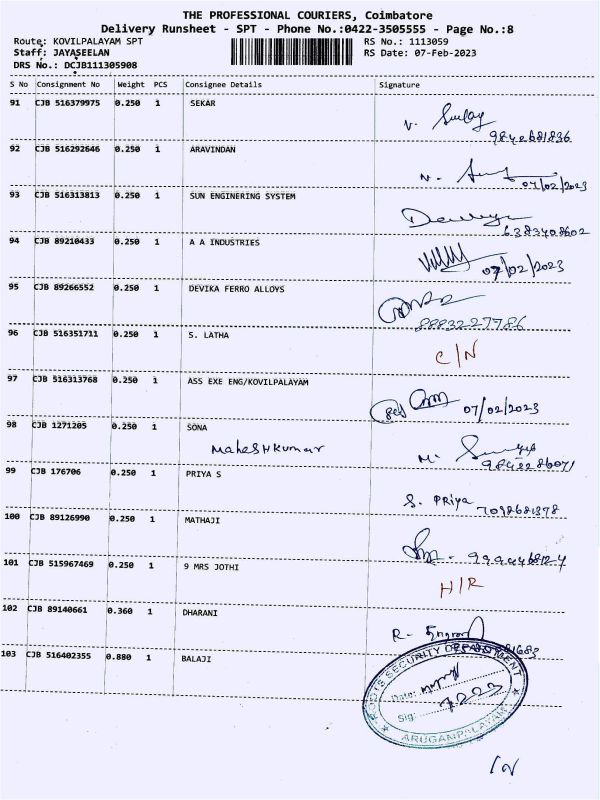 THE PROFESSIONAL COURIERS, Coimbatore
Delivery Runsheet - SPT - Phone No.:0422-3505555 - Page No.:8
Route: KOVILPALAYAM SPT RS No.: 1113059
Staff: JAYASEELAN RS Date: 07-Feb-2023
DRS No.: DCJB111305908
S No Consignment No Weight PCS Consignee Details Signature
91 CJB 516379975 0.250 1 SEKAR
9842681836
92 CJB 516292646 0.250 1 ARAVINDAN
N. 07/02/2023
93 CJB 516313813 0.250 1 SUN ENGINERING SYSTEM
6383408602
94 CJB 89210433 0.250 1 A A INDUSTRIES
07/02/2023
95 CJB 89266552 0.250 1 DEVIKA FERRO ALLOYS
8883227786
96 CJB 516351711 0.250 1 S. LATHA
C/N
97 CJB 516313768 0.250 1 ASS EXE ENG/KOVILPALAYAM
07/02/2023
98 CJB 1271205 0.250 1 SONA
MaheshKumar M.
9842286071
99 CJB 176706 0.250 1 PRIYA S
S. PRIYA 7098681378
100 CJB 89126990 0.250 1 MATHAJI
101 CJB 515967469 0.250 1 9 MRS JOTHI
H/R
102 CJB 89140661 0.360 1 DHARANI
R.
103 CJB 516402355 0.880 1 BALAJI
SECURITY DEPARTMENT
Date:
Sig:
7223
ARUGAMPALAYAM